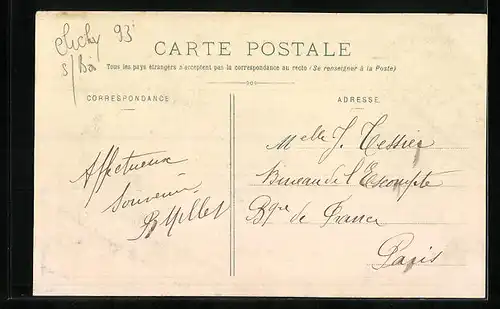 Clichy 93
s/Bois
CARTE POSTALE
Tous les pays étrangers n'acceptent pas la correspondance au recto (Se renseigner à la Poste)
CORRESPONDANCE
Affectueux
Souvenir
ADRESSE
Melle J. Tessier
Bureau de l'Escompte
Bque de France
Paris